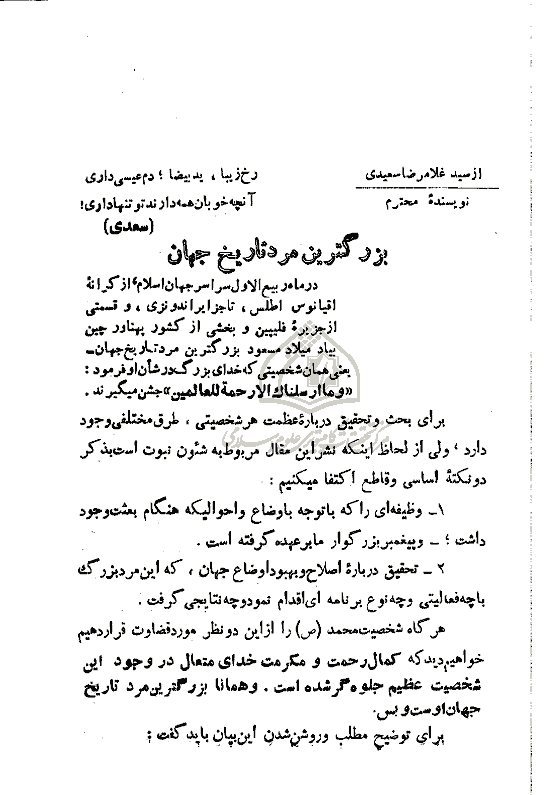 از سید غلامرضا سعیدی
نویسندهٔ محترم
رخ زیبا ، ید بیضا ؛ دم عیسی داری
آنچه خوبان همه دارند تو تنها داری!
(سعدی)
بزرگترین مرد تاریخ جهان
در ماه ربیع الاول سراسر جهان اسلام ؛ از کرانهٔ
اقیانوس اطلس ، تا جزایر اندونزی ، و قسمتی
از جزیرهٔ فلیپین و بخشی از کشور پهناور چین
بیاد میلاد مسعود بزرگترین مرد تاریخ جهان ـ
یعنی همان شخصیتی که خدای بزرگ در شأن او فرمود :
«وما ارسلناك الا رحمة للعالمین» جشن میگیرند .
برای بحث و تحقیق دربارهٔ عظمت هر شخصیتی ، طرق مختلفی وجود
دارد ؛ ولی از لحاظ اینکه نشر این مقال مربوط به شئون نبوت است بذکر
دو نکتهٔ اساسی و قاطع اکتفا میکنیم :
۱ـ وظیفه‌ای را که با توجه باوضاع و احوالیکه هنگام بعثت وجود
داشت ؛ ـ وپیغمبر بزرگوار ما بر عهده گرفته است .
۲ ـ تحقیق دربارهٔ اصلاح و بهبود اوضاع جهان ، که این مرد بزرگ
با چه فعالیتی و چه نوع برنامه ای اقدام نمود و چه نتایجی گرفت .
هر گاه شخصیت محمد (ص) را از این دو نظر مورد قضاوت قرار دهیم
خواهیم دید که کمال رحمت و مکرمت خدای متعال در وجود این
شخصیت عظیم جلوه گر شده است . و همانا بزرگترین مرد تاریخ
جهان اوست و بس.
برای توضیح مطلب و روشن شدن این بیان باید گفت :